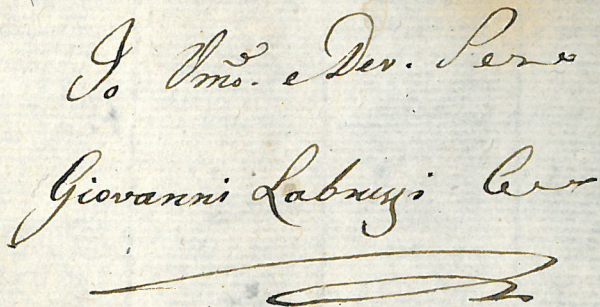 Io Umo. e Dev. Sere
Giovanni Labruzzi